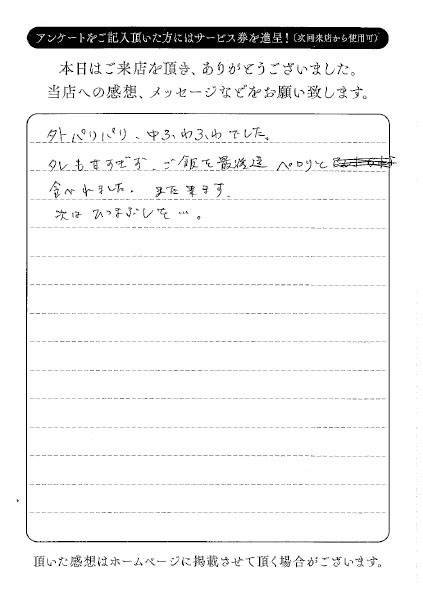 アンケートをご記入頂いた方にはサービス券を進呈！（次回来店から使用可）
本日はご来店を頂き、ありがとうございました。
当店への感想、メッセージなどをお願い致します。
外パリパリ、中ふわふわでした。
タレも ご飯を最後迄 ペロリと
食べれました. また来ます.
次は ひつまぶしを…。
頂いた感想はホームページに掲載させて頂く場合がございます。